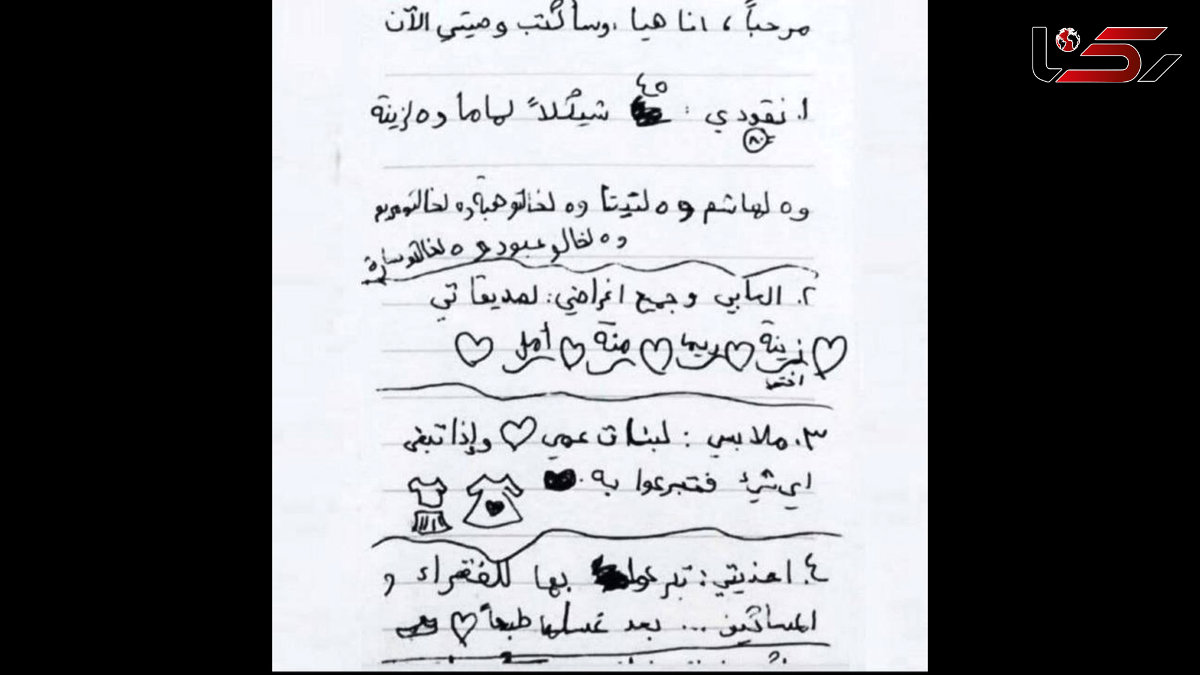 مرحباً، انا هيا، وسأكتب وصيتي الآن
رکنا
٤٥
١. نقودي : شيكلاً لماما و٥ لزينة
٨٠
و٥ لهاشم و٥ لتيتا و٥ لخالتو هبة و٥ لخالتو مريم
و٥ لخالو عبود و٥ لخالتو سارة
٢. العابي وجميع اغراضي: لصديقاتي
زينة ريما منة أمل
اختي
٣. ملابسي : لبنات عمي وإذا تبقى
اي شيء فتبرعوا به.
٤. احذيتي: تبرعوا بها للفقراء و
المساكين ... بعد غسلها طبعاً